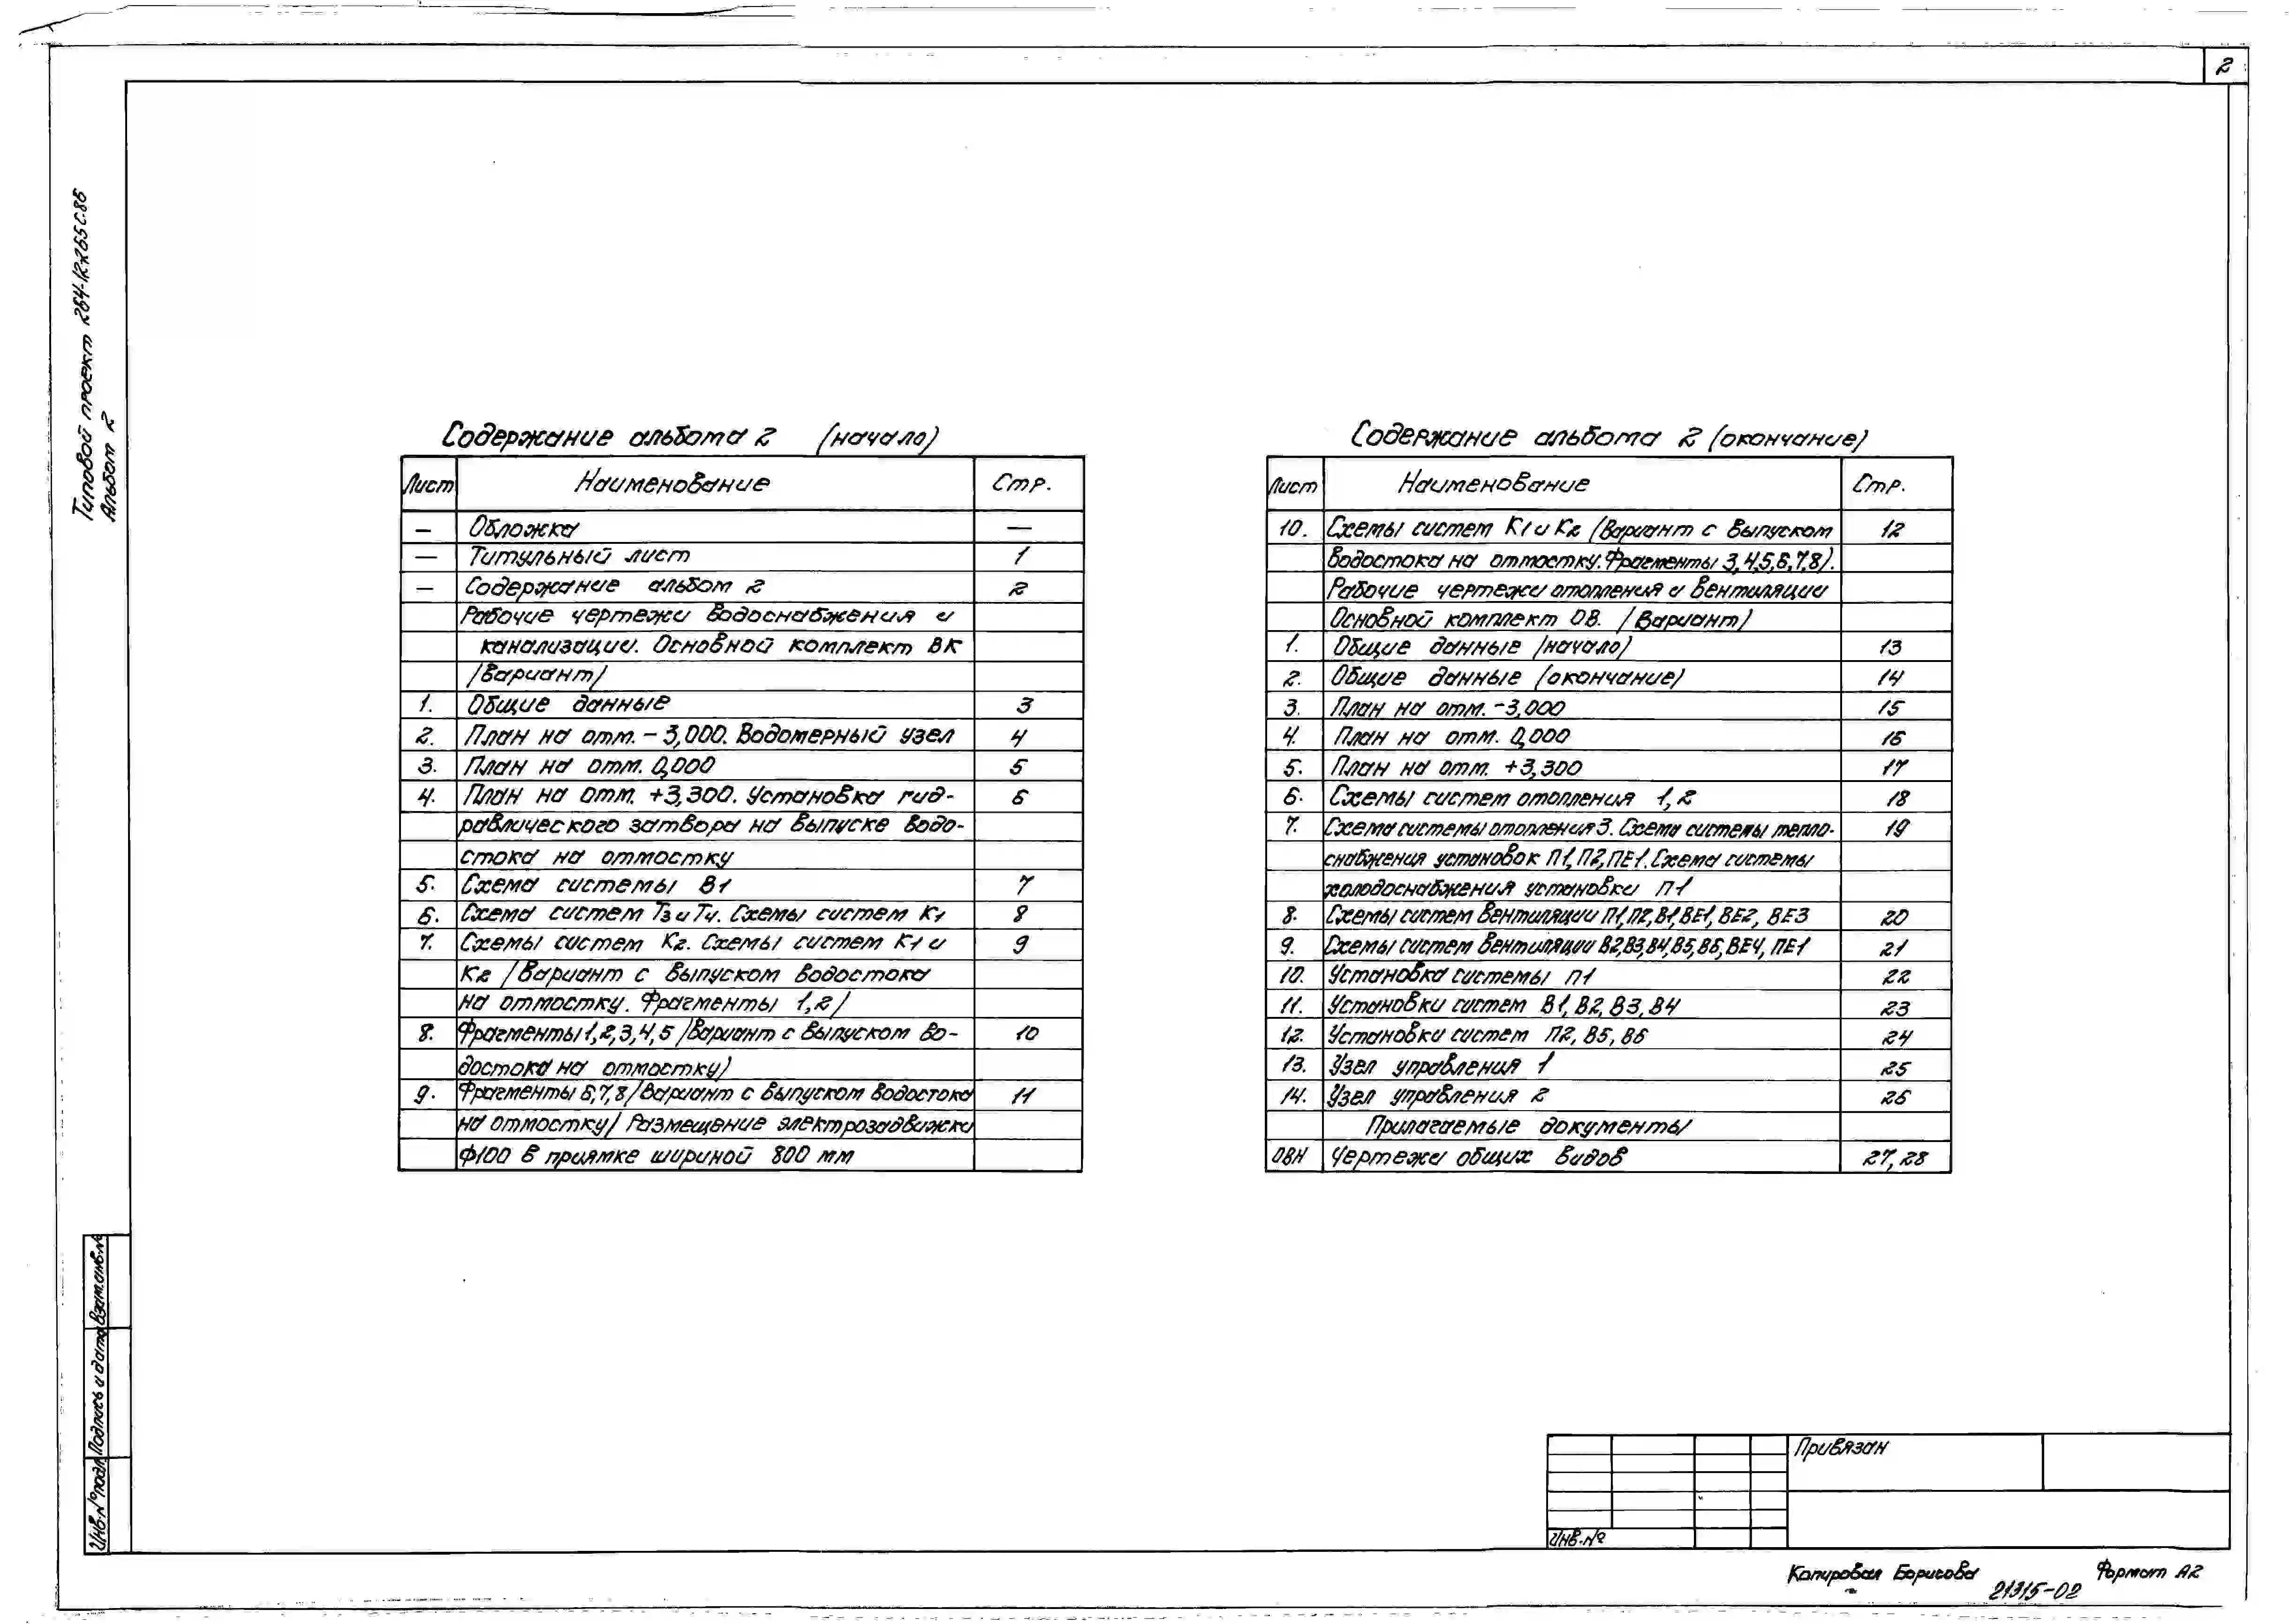 2
Типовой проект 264-12-265 С.86
Альбом 2
Содержание альбома 2 (начало)
Лист Наименование Стр.
— Обложка —
— Титульный лист 1
— Содержание альбом 2 2
Рабочие чертежи водоснабжения и
канализации. Основной комплект ВК
/Вариант/
1. Общие данные 3
2. План на отм. -3,000. Водомерный узел 4
3. План на отм. 0,000 5
4. План на отм. +3,300. Установка гид-
равлического затвора на выпуске водо-
стока на отмостку
5. Схема системы В1 7
6. Схема систем Т3 и Т4. Схемы систем К1 8
7. Схемы систем К2. Схемы систем К1 и 9
К2 /Вариант с выпуском водостока
на отмостку. Фрагменты 1,2/
8. Фрагменты 1,2,3,4,5 /Вариант с выпуском во- 10
достока на отмостку)
9. Фрагменты 6,7,8 /Вариант с выпуском водостока 11
на отмостку/ Размещение электрозадвижки
Ф100 в приямке шириной 800 мм
Содержание альбома 2 (окончание)
Лист Наименование Стр.
10. Схемы систем К1 и К2 /Вариант с выпуском 12
водостока на отмостку. Фрагменты 3,4,5,6,7,8).
Рабочие чертежи отопления и вентиляции
Основной комплект ОВ. /Вариант/
1. Общие данные /начало) 13
2. Общие данные (окончание) 14
3. План на отм. -3,000 15
4. План на отм. 0,000 16
5. План на отм. +3,300 17
6. Схемы систем отопления 1,2 18
7. Схема системы отопления 3. Схема системы тепло- 19
снабжения установок П1, П2, ПЕ1. Схема системы
холодоснабжения установки П1
8. Схемы систем вентиляции П1, П2, В1, ВЕ1, ВЕ2, ВЕ3 20
9. Схемы систем вентиляции В2, В3, В4, В5, В6, ВЕ4, ПЕ1 21
10. Установка системы П1 22
11. Установки систем В1, В2, В3, В4 23
12. Установки систем П2, В5, В6 24
13. Узел управления 1 25
14. Узел управления 2 26
Прилагаемые документы
ОВН Чертежи общих видов 27, 28
Взам.инв.№
Подпись и дата
Инв.№ подл.
Привязан
Инв.№
Копировал Борисова Формат А2
21315-02